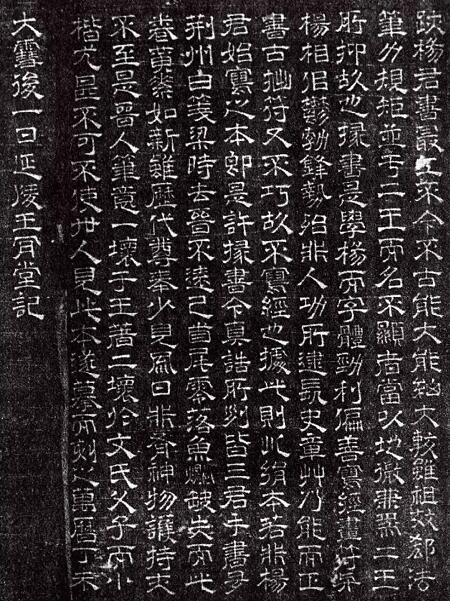 跋楊君書最工不今不古能大能細大較雖祖效郗法
筆力規矩並于二王而名不顯者當以地微兼爲二王
所抑故也掾書是學楊而字體勁利偏善寫經畫符與
楊相佀鬱勃鋒勢殆非人功所逮長史章艸乃能而正
書古拙符又不巧故不寫經也據此則此絹本若非楊
君始寫之本卽是許掾書今真誥所列皆三君手書
荊州白箋梁時去晉不遠已首尾零落魚爛缺失而此
卷如新雖歷代尊奉少見風日非有神物護持決
不至是晉人筆意一壞于王著二壞於文氏父子而小
楷尤是不可不使世人見此本遂摹而刻之萬曆丁未
大雪後一日延陵王肯堂記